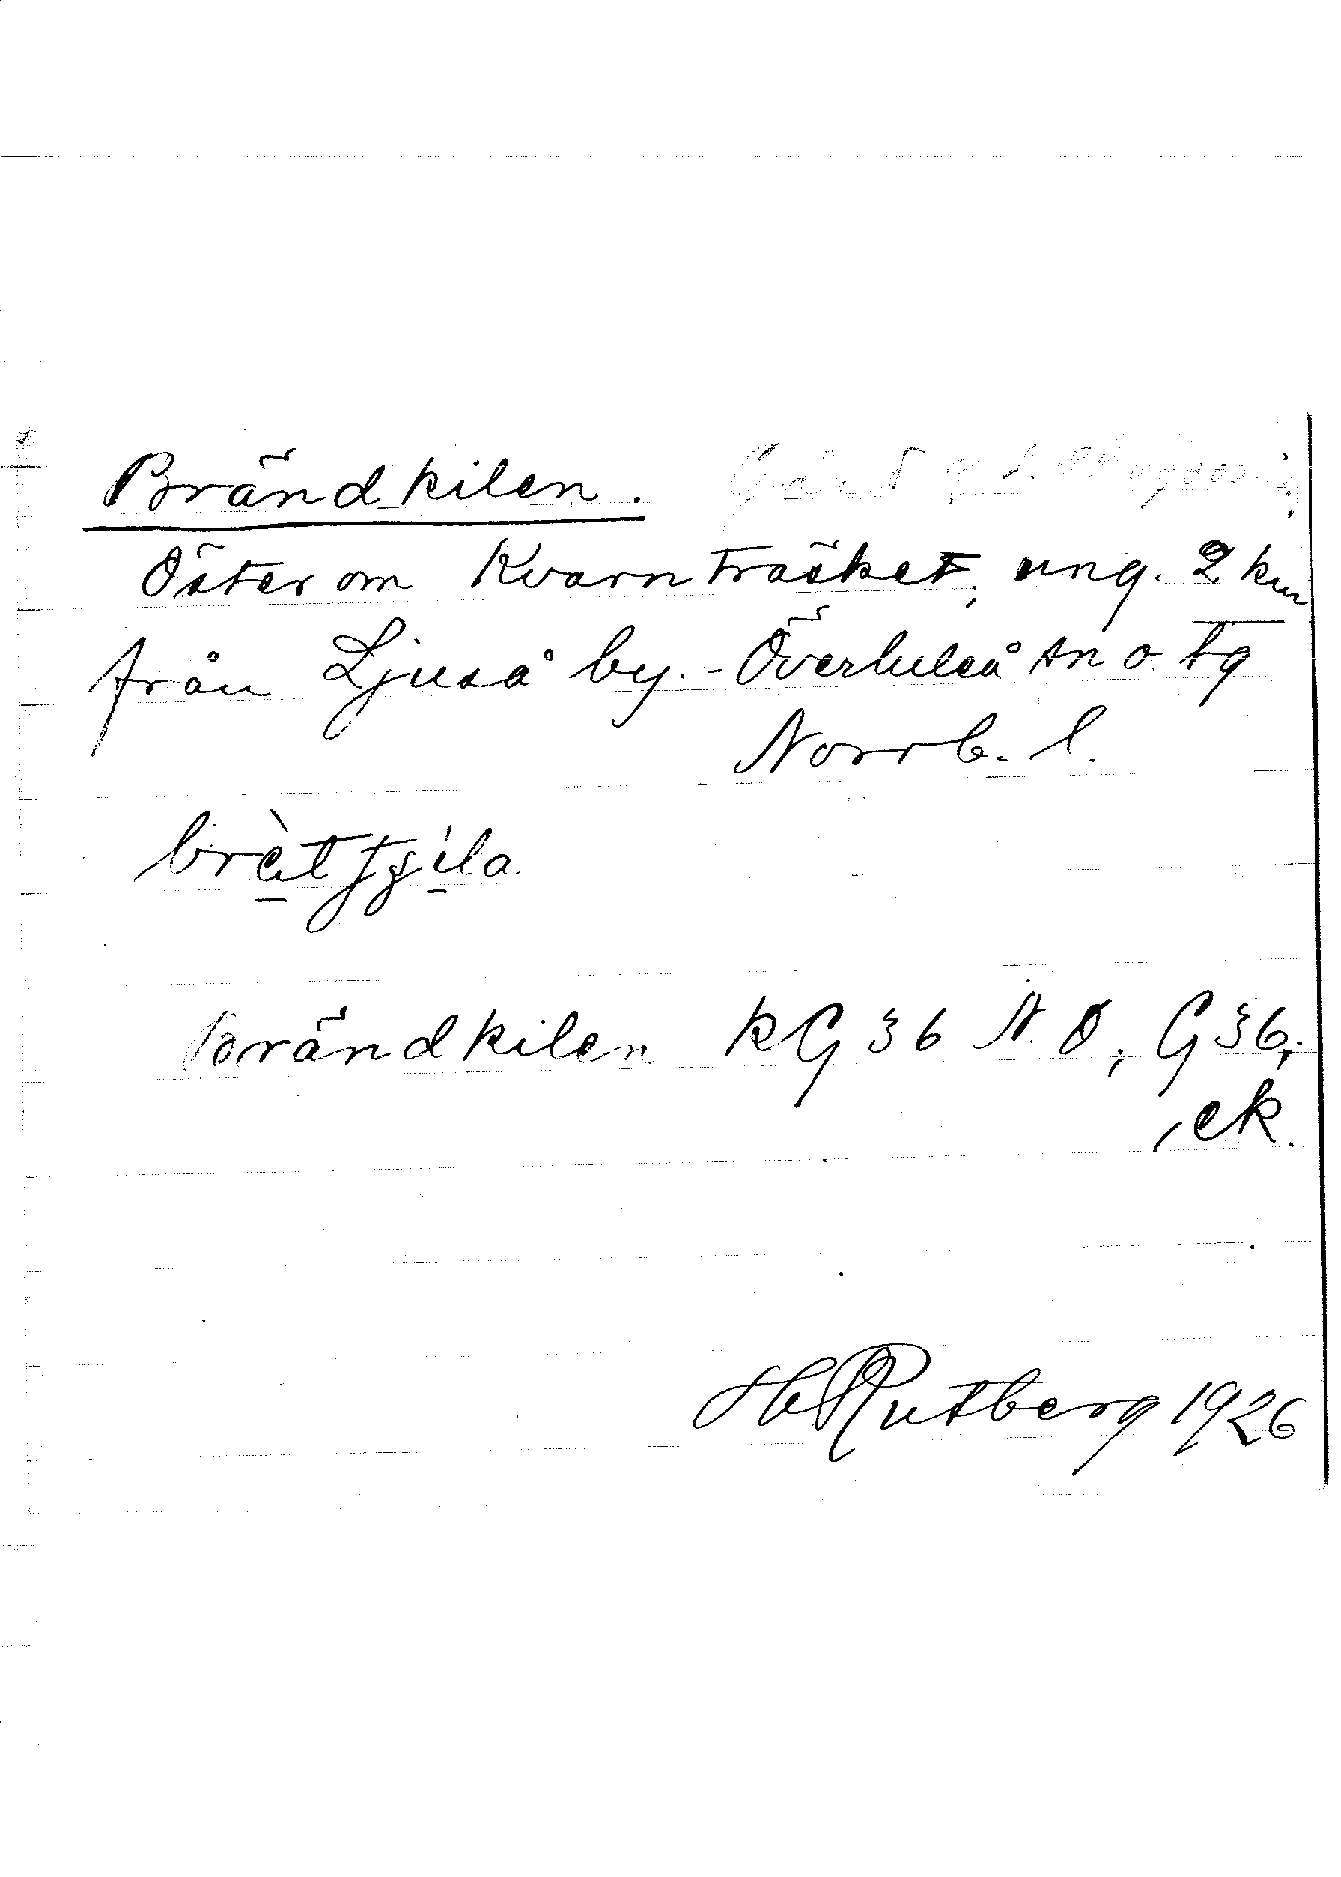 Brändkilen.
Öster om Kvarnträsket, ung. 2 km
från Ljuså by. - Överluleå sn o. tg
Norrb. l.
Brändkilen kG 36 N. O, G 36,
, ek.
H Rutberg 1926